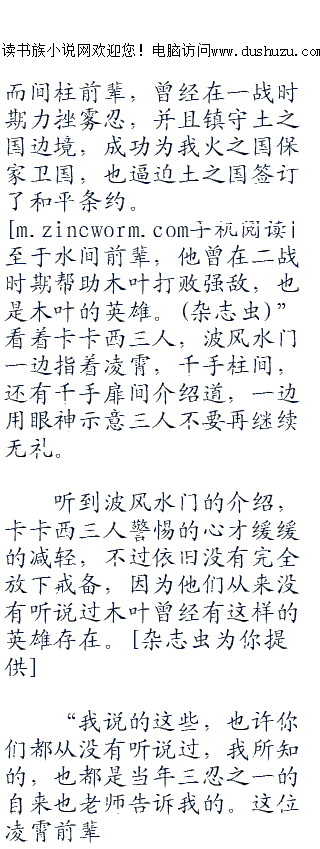 读书族小说网欢迎您！电脑访问www.dushuzu.com
而间柱前辈，曾经在一战时
期力挫雾忍，并且镇守土之
国边境，成功为我火之国保
家卫国，也逼迫土之国签订
了和平条约。
[m.zincworm.com手机阅读|
至于水间前辈，他曾在二战
时期帮助木叶打败强敌，也
是木叶的英雄。(杂志虫)”
看着卡卡西三人，波风水门
一边指着凌霄，千手柱间，
还有千手扉间介绍道，一边
用眼神示意三人不要再继续
无礼。
听到波风水门的介绍，
卡卡西三人警惕的心才缓缓
的减轻，不过依旧没有完全
放下戒备，因为他们从来没
有听说过木叶曾经有这样的
英雄存在。[杂志虫为你提
供]
“我说的这些，也许你
们都从没有听说过，我所知
的，也都是当年三忍之一的
自来也老师告诉我的。这位
凌霄前辈